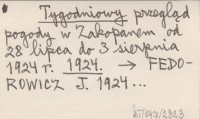 Tygodniowy przegląd
pogody w Zakopanem od
28 lipca do 3 sierpnia
1924 r. 1924. → FEDO-
ROWICZ J. 1924...